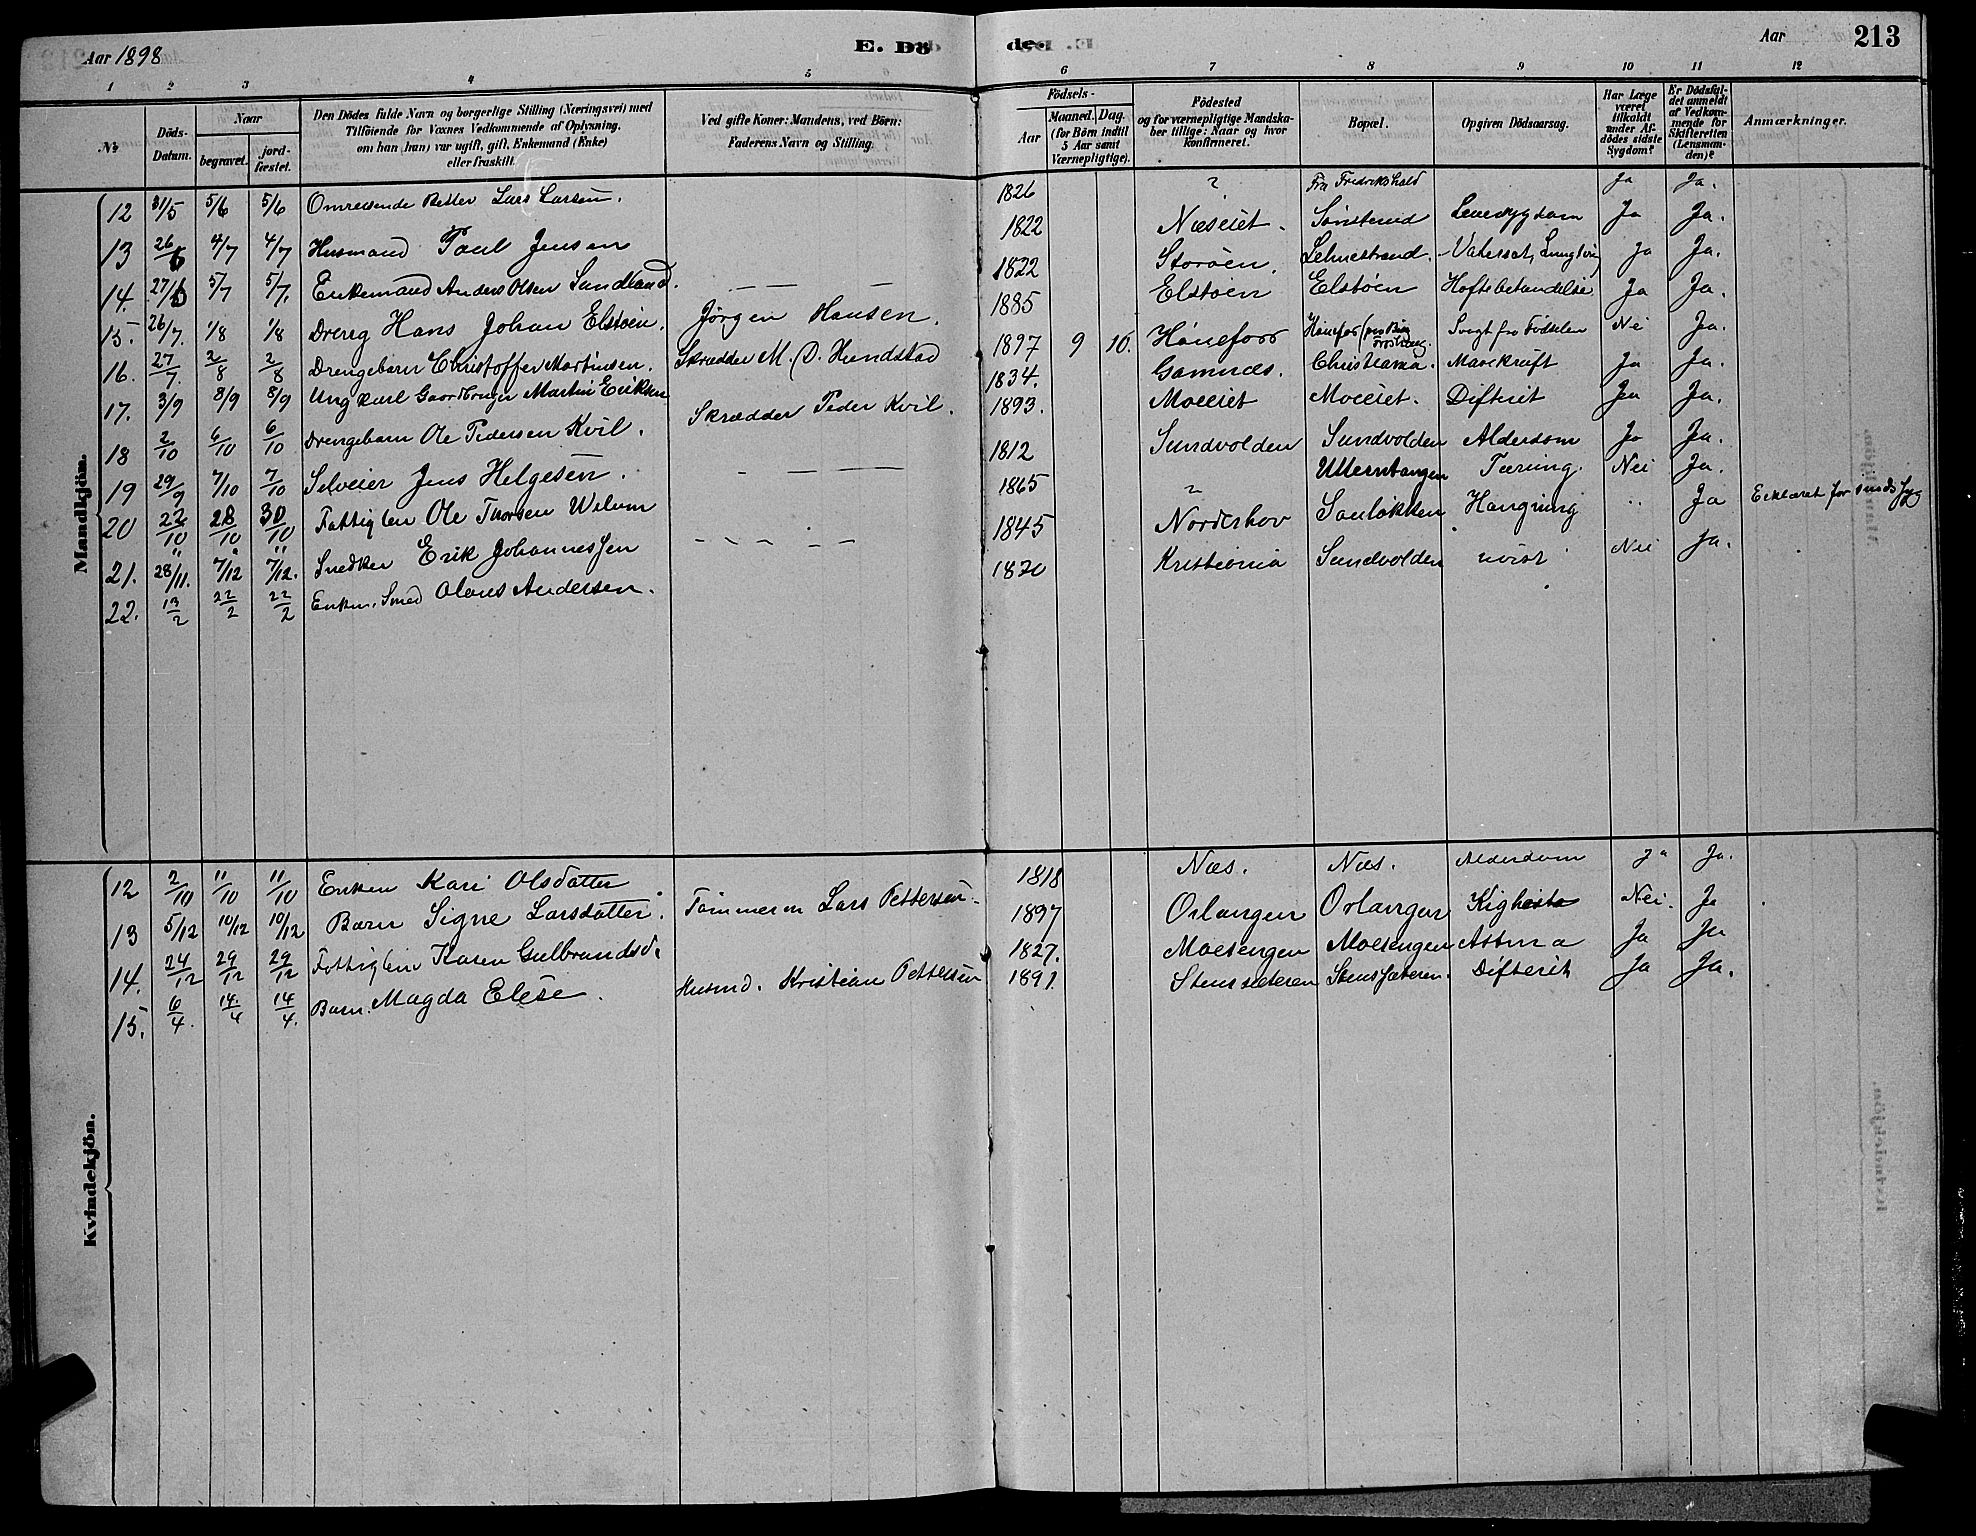 Aar 1898
E. Dö
de.
Aar
213
1 2 3 4 5 6 7 8 9 10 11 12
No
Döds-Datum.
Naar
begravet.
jord-fæstet.
Den Dödes fulde Navn og borgerlige Stilling (Næringsvei) med
Tilföiende for Voxnes Vedkommende af Oplysning,
om han (hun) var ugift, gift, Enkemand (Enke)
eller fraskilt.
Ved gifte Koner: Mandens, ved Börn:
Faderens Navn og Stilling.
Födsels-
Aar
Maaned. Dag.
(for Börn indtil
5 Aar samt
Værnepligtige).
Födested
og for værnepligtige Mandska-
ber tillige: Naar og hvor
konfirmeret.
Bopæl.
Opgiven Dödsaarsag.
Har Læge
været
tilkaldt
under Af-
dödes sidste
Sygdom?
Er Dödsfal-
det anmeldt
af Vedkom-
mende for
Skifteretten
(Lensman-
den)?
Anmærkninger.
Mandkjön.
12 31/5 5/6 5/6 Omreisende Betler Lars Larsen. 1826 ? Fra Fredrikshald Ja Ja.
13 26/6 4/7 4/7 Husmand Paul Jensen 1822 Næseiet. Sønsterud Ja Ja.
14. 27/6 5/7 5/7. Enkemand Anders Olsen Sundland. — — — 1822 Storøen. Ja Ja.
15. 26/7. 1/8 1/8 Dreng Hans Johan Elstøen. Jørgen Hansen. 1885 Elstøen Elstøen Ja Ja.
16. 27/7. 2/8 2/8 Drengebarn Christoffer Martinsen. Skrædder M. O. Hundstad 1897 9 16. Hønefoss Svagt fra Fødselen Nei Ja.
17. 3/9 8/9 8/9 Ungkarl Gaardbruger Martin Eriksen 1834. Gomnæs. Christiania. Mavekræft Ja Ja.
18 2/10 6/10 6/10 Drengebarn Ole Pedersen Kvil. Skrædder Peder Kvil. 1893. Moeiet Moeiet. Difterit Ja Ja.
19 29/9 7/10 7/10 Selveier Jens Helgesen. - — — — 1812 Sundvolden Sundvolden Alderdom Ja Ja.
20 22/10 28/10 30/10 Fattiglem Ole Thorsen 1865 ? Utterntangen Tæring. Nei Ja.
21. 28/11. 7/12 7/12. Snedker Erik Johannessen - - - - - 1845 Norderhov Sonløkken Hængning " Ja Erklæret for sindssyg
22. 13/2 22/2 22/2 Enkem. Smed Olaus Andersen. 1820 Kristiania Sundvolden uvist Nei Ja.
Kvindekjön.
12 2/10 11/10 11/10 Enken Kari Olsdatter 1818 Næs. Næs. Alderdom Ja Ja.
13 5/12 10/12 10/12 Barn Signe Larsdatter. Tømmerm Lars Pettersen. 1897 Orlangen Orlangen Kighoste Nei. Ja
14. 24/12 29/12 29/12 Fattiglem Karen Gulbrandsd. 1827. Moesengen Moesengen Astma Ja Ja
15. 6/4. 14/4 14/4. Barn. Magda Elese. Husmd. Kristian Pettersen 1891. Stenssæteren Stenssæteren. Difterit Ja Ja.